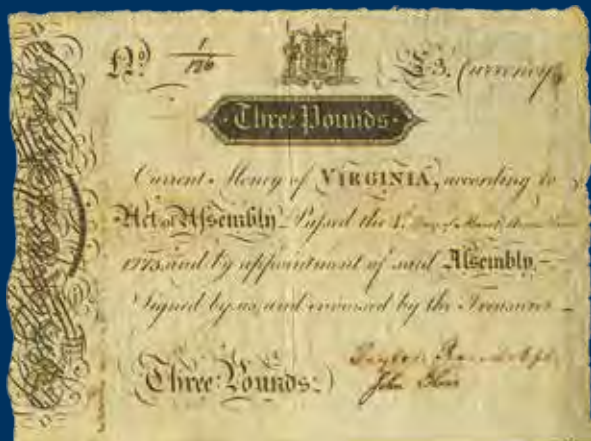 No 1
176
£3. Currency
Three Pounds
Current Money of VIRGINIA, according to
Act of Assembly Passed the 4 Day of March
1773, and by appointment of said Assembly,
Signed by us, and endorsed by the Treasurer
(Three Pounds.)
Peyton Randolph
John